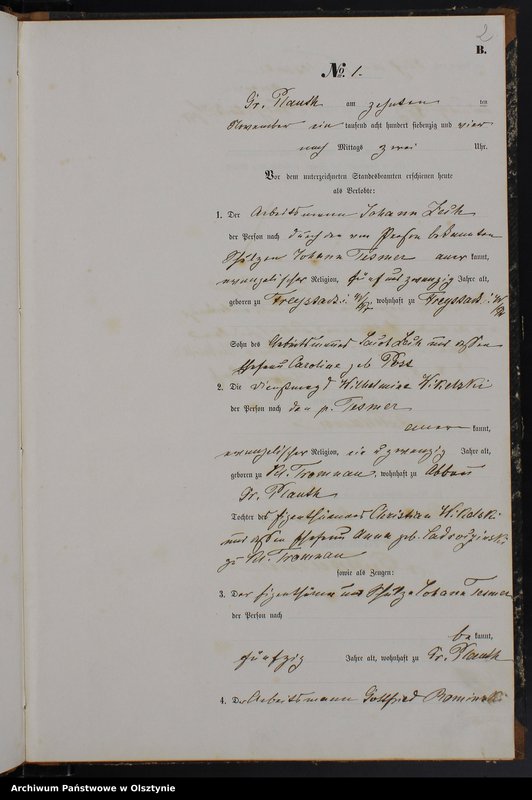 2
B.
No. 1.
Gr. Plauth am zehnten ten
November ein tausend acht hundert siebenzig und vier
nach Mittags zwei Uhr.
Vor dem unterzeichneten Standesbeamten erschienen heute
als Verlobte:
1. Der Arbeitsmann Johann
der Person nach durch den von Person bekannten
Schulzen Johann Tesmer aner kannt,
evangelischer Religion, fünf und zwanzig Jahre alt,
geboren zu Freystadt wohnhaft zu Freystadt
Sohn des Arbeitsmannes und dessen
Ehefrau Caroline geb Post
2. Die Dienstmagd Wilhelmine
der Person nach den p. Tesmer
aner kannt,
evangelischer Religion, ein u zwanzig Jahre alt,
geboren zu Kl. Tromnau, wohnhaft zu
Gr. Plauth
Tochter des Eigenthümers Christian
und dessen Ehefrau Anna geb.
zu Kl. Tromnau
sowie als Zeugen:
3. Der Eigenthümer und Schulze Johann Tesmer
der Person nach
be kannt,
fünfzig Jahre alt, wohnhaft zu Gr. Plauth
4. Der Arbeitsmann Gottfried
Archiwum Państwowe w Olsztynie